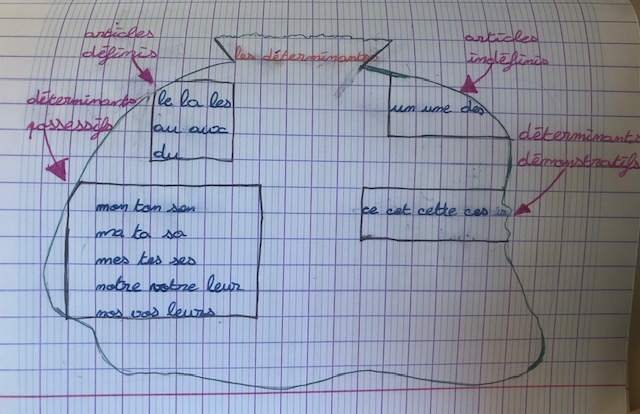 les déterminants
articles
définis
articles
indéfinis
le la les
au aux
du
un une des
déterminants
possessifs
déterminants
démonstratifs
mon ton son
ma ta sa
mes tes ses
notre votre leur
nos vos leurs
ce cet cette ces